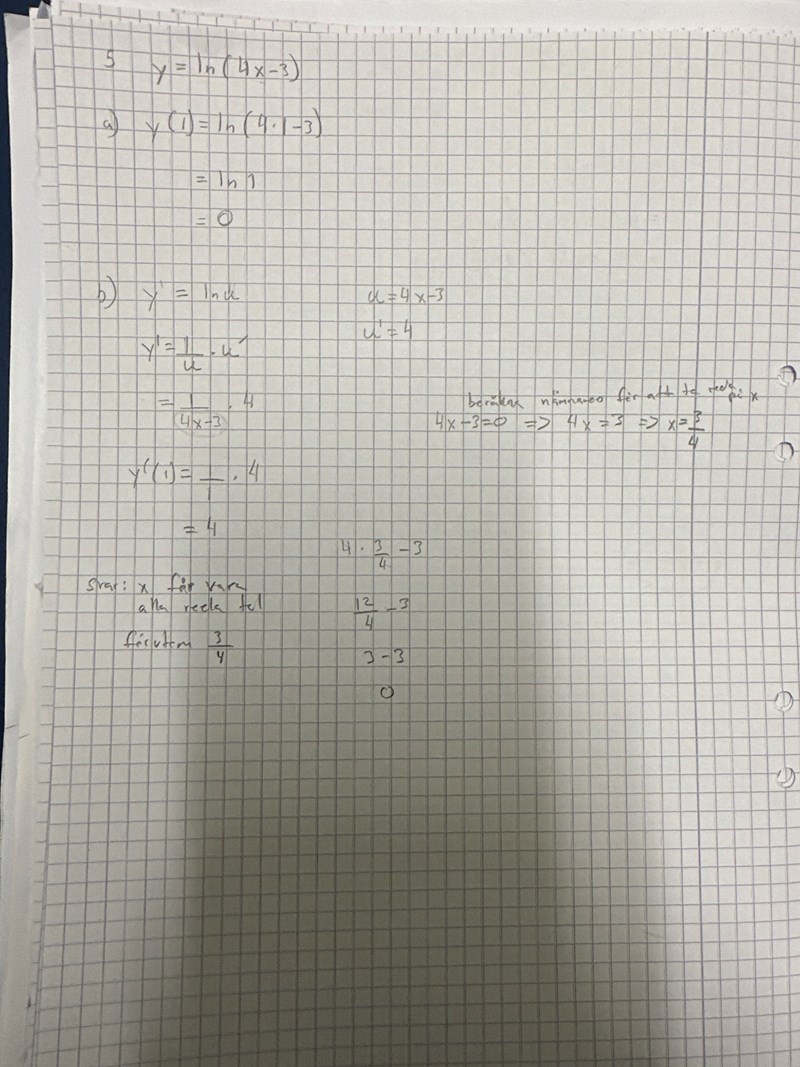 5 y = ln(4x-3)
a) y(1) = ln(4·1-3)
= ln 1
= 0
b) y' = ln u u = 4x-3
u' = 4
y' = 1/u · u'
= 1/(4x-3) · 4
beräkna nämnaren för att ta reda på x
4x-3=0 => 4x=3 => x=3/4
y'(1) = 1/1 · 4
= 4
4 · 3/4 - 3
svar: x får vara
alla reela tal
12/4 - 3
förutom 3/4
3-3
0